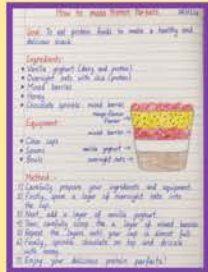 How to make Protein Parfaits
Goal: To eat protein foods to make a healthy and
delicious snack.
Ingredients:
• Vanilla yoghurt (dairy and protein)
• Overnight oats with chia (protein)
• Mixed berries
• Honey
• Chocolate sprinkle, mixed berries
mixed berries
vanilla yoghurt
overnight oats
Equipment:
• Clear cups
• Spoons
• Bowls
Method:
1) Carefully prepare your ingredients and equipment.
2) Firstly, spoon a layer of overnight oats into
the cup.
3) Next, add a layer of vanilla yoghurt.
4) Then, carefully the a layer of mixed berries.
5) Repeat the layers until your cup is almost full.
6) Finally, sprinkle chocolate on top and drizzle
with honey.
7) Enjoy your delicious protein parfaits!